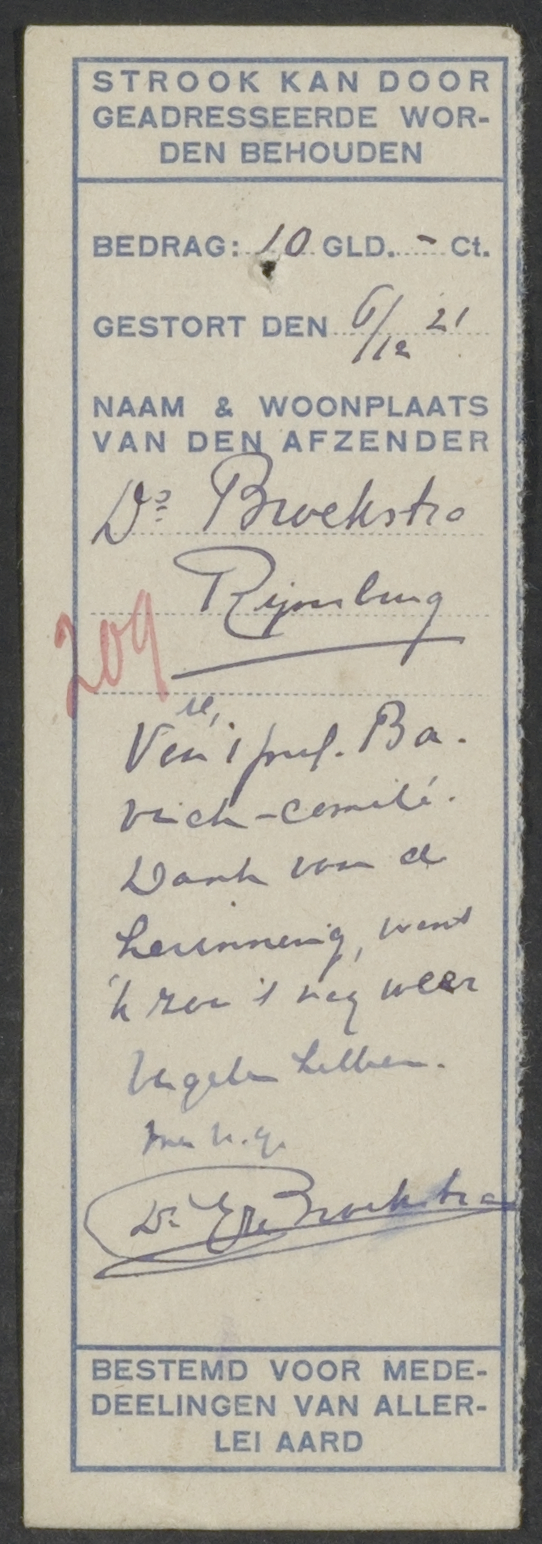 STROOK KAN DOOR
GEADRESSEERDE WOR-
DEN BEHOUDEN
BEDRAG: 10 GLD. - Ct.
GESTORT DEN 6/12 21
NAAM & WOONPLAATS
VAN DEN AFZENDER
Ds Broekstra
Rijnsburg
209
prof. Ba-
vinck-comité.
Dank voor de
herinnering, want
'k zou 't nog weer
vergeten hebben.
Broekstra
BESTEMD VOOR MEDE-
DEELINGEN VAN ALLER-
LEI AARD